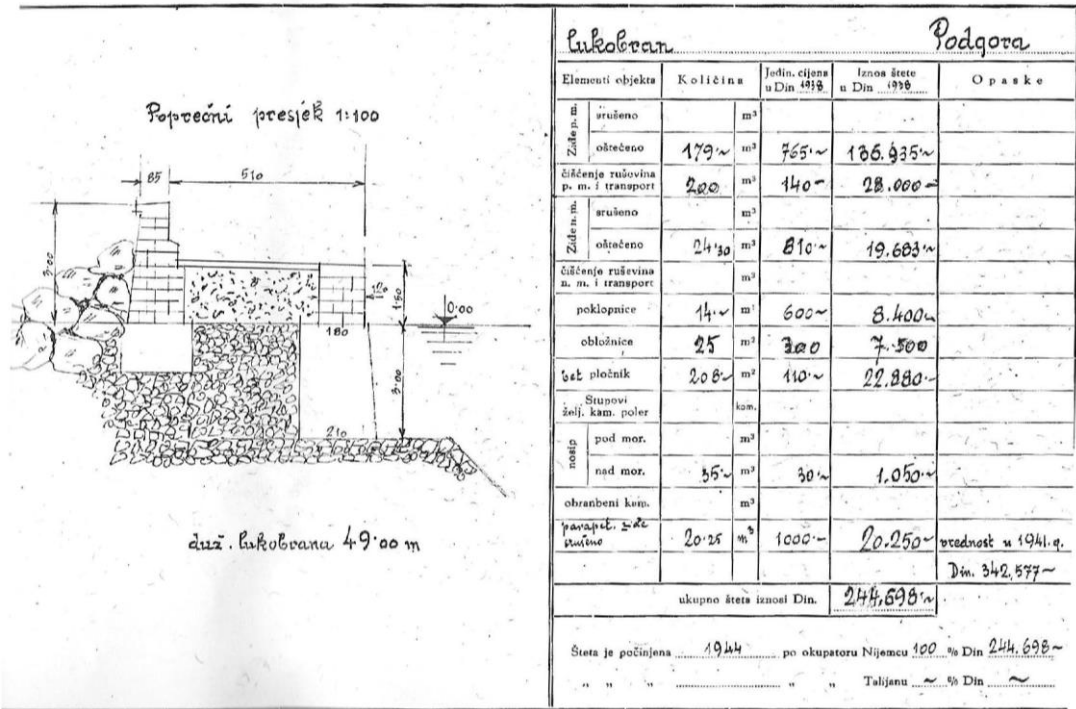 Poprečni presjek 1:100
85
510
3·00
1·50
0·00
180
3·00
210
duž. lukobrana 49·00 m
lukobran Podgora
Elementi objekta Količina Jedin. cijena u Din 1938 Iznos štete u Din 1938 Opaske
Ziđe p. m.
srušeno m³
oštećeno 179·~ m³ 765·~ 136.935·~
čišćenje ruševina
p. m. i transport 200 m³ 140~ 28.000~
Ziđe n. m.
srušeno m³
oštećeno 24·30 m³ 810·~ 19.683·~
čišćenje ruševina
n. m. i transport m³
poklopnice 14·~ m¹ 600~ 8.400~
obložnice 25 m² 300 7.500
bet pločnik 208~ m² 110·~ 22.880·~
Stupovi
želj. kam. poler kom.
nasip
pod mor. m³
nad mor. 35~ m³ 30·~ 1.050·~
obranbeni kam. m³
parapet. ziđe
srušeno 20·25 m³ 1000·~ 20.250~ vrednost u 1941. g.
Din. 342,577~
ukupno šteta iznosi Din. 244,698·~
Šteta je počinjena 1944 po okupatoru Nijemcu 100 % Din 244.698~
" " " " " Talijanu ~ % Din ~